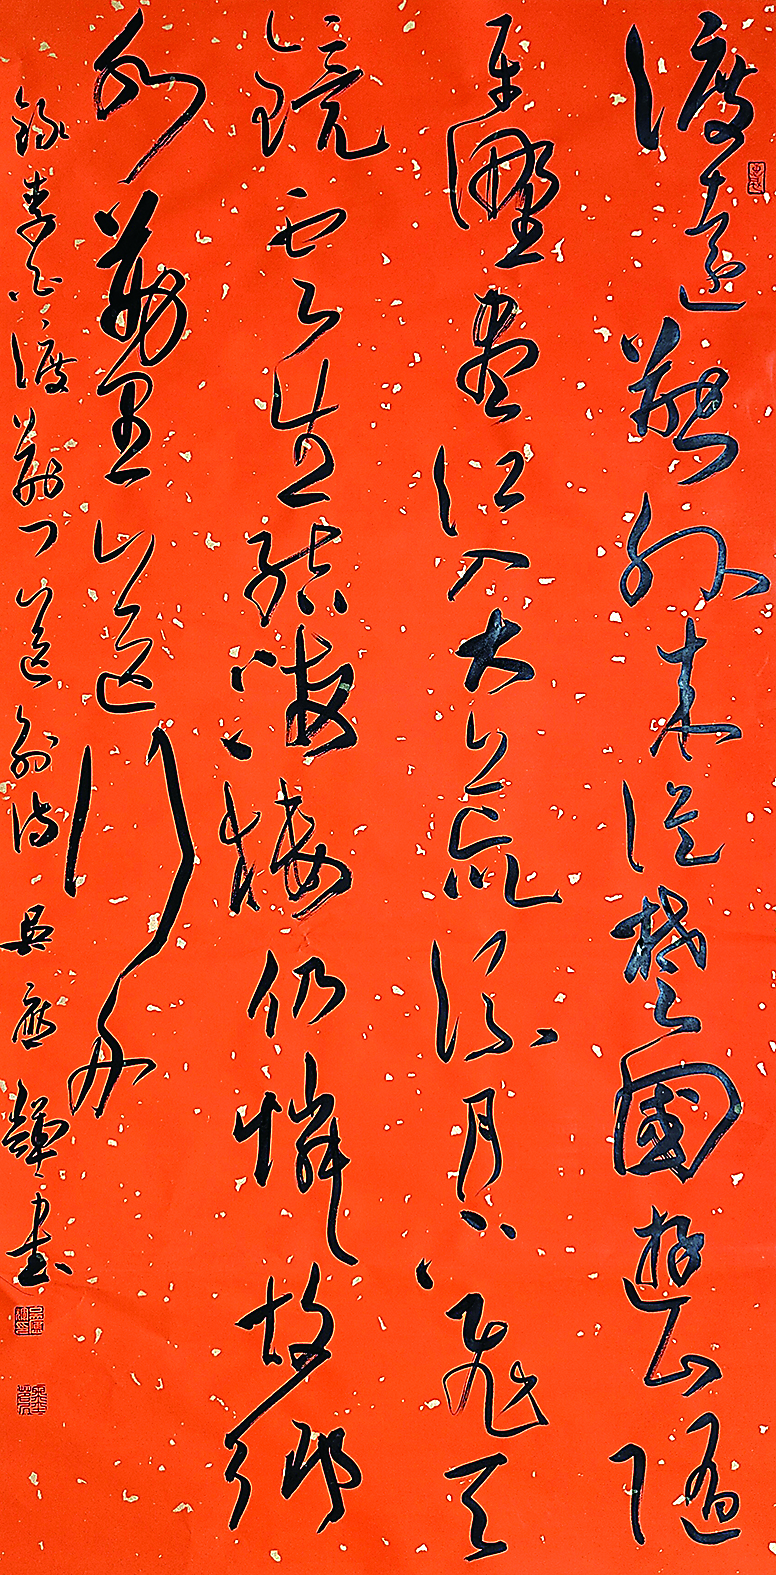 渡遠荊門外來從楚國遊山隨
平野盡江入大荒流月下飛天
鏡雲生結海樓仍憐故鄉
水萬里送行舟
錄李白渡荊門送別詩吳應輝書